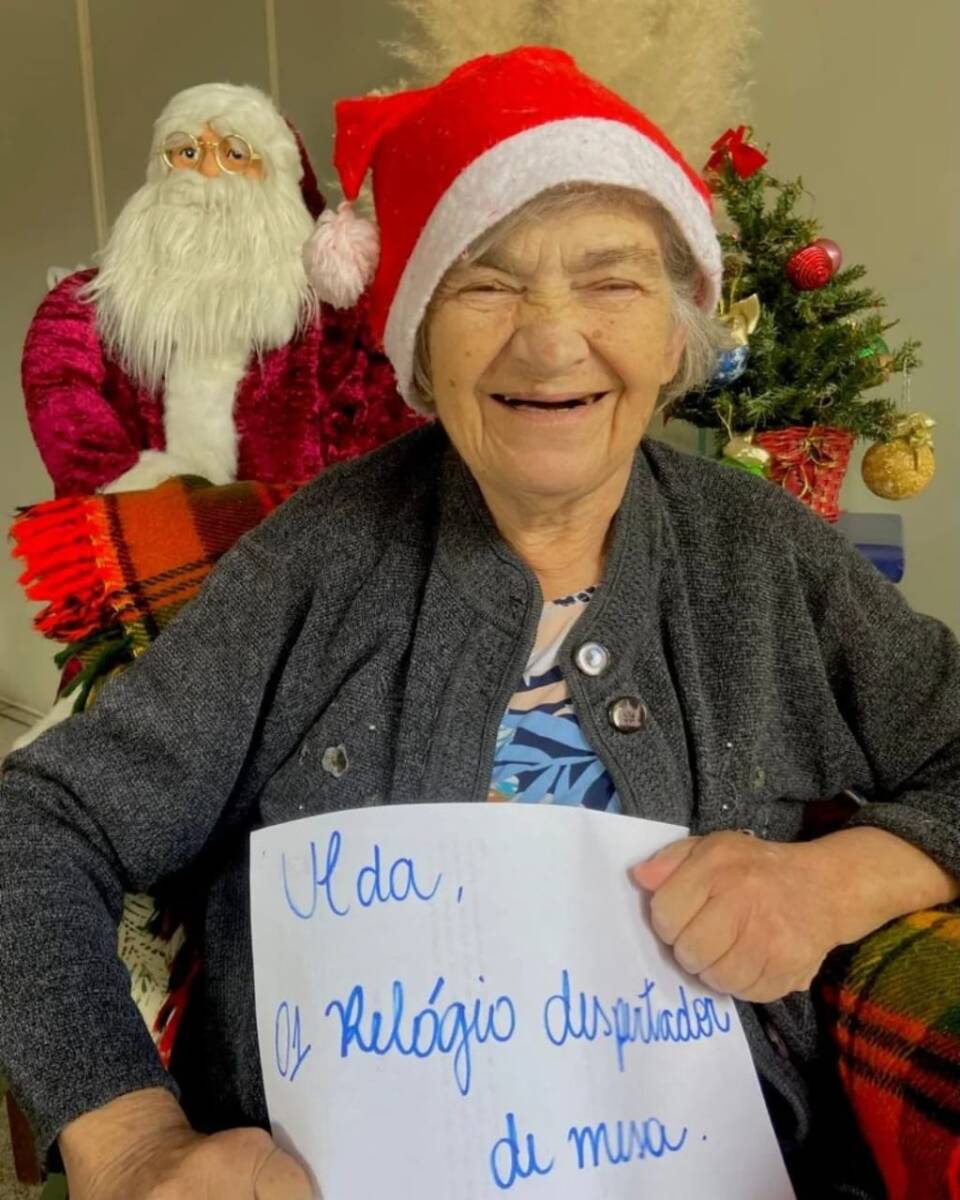 Ulda,
01 Relógio despertador
de mesa.